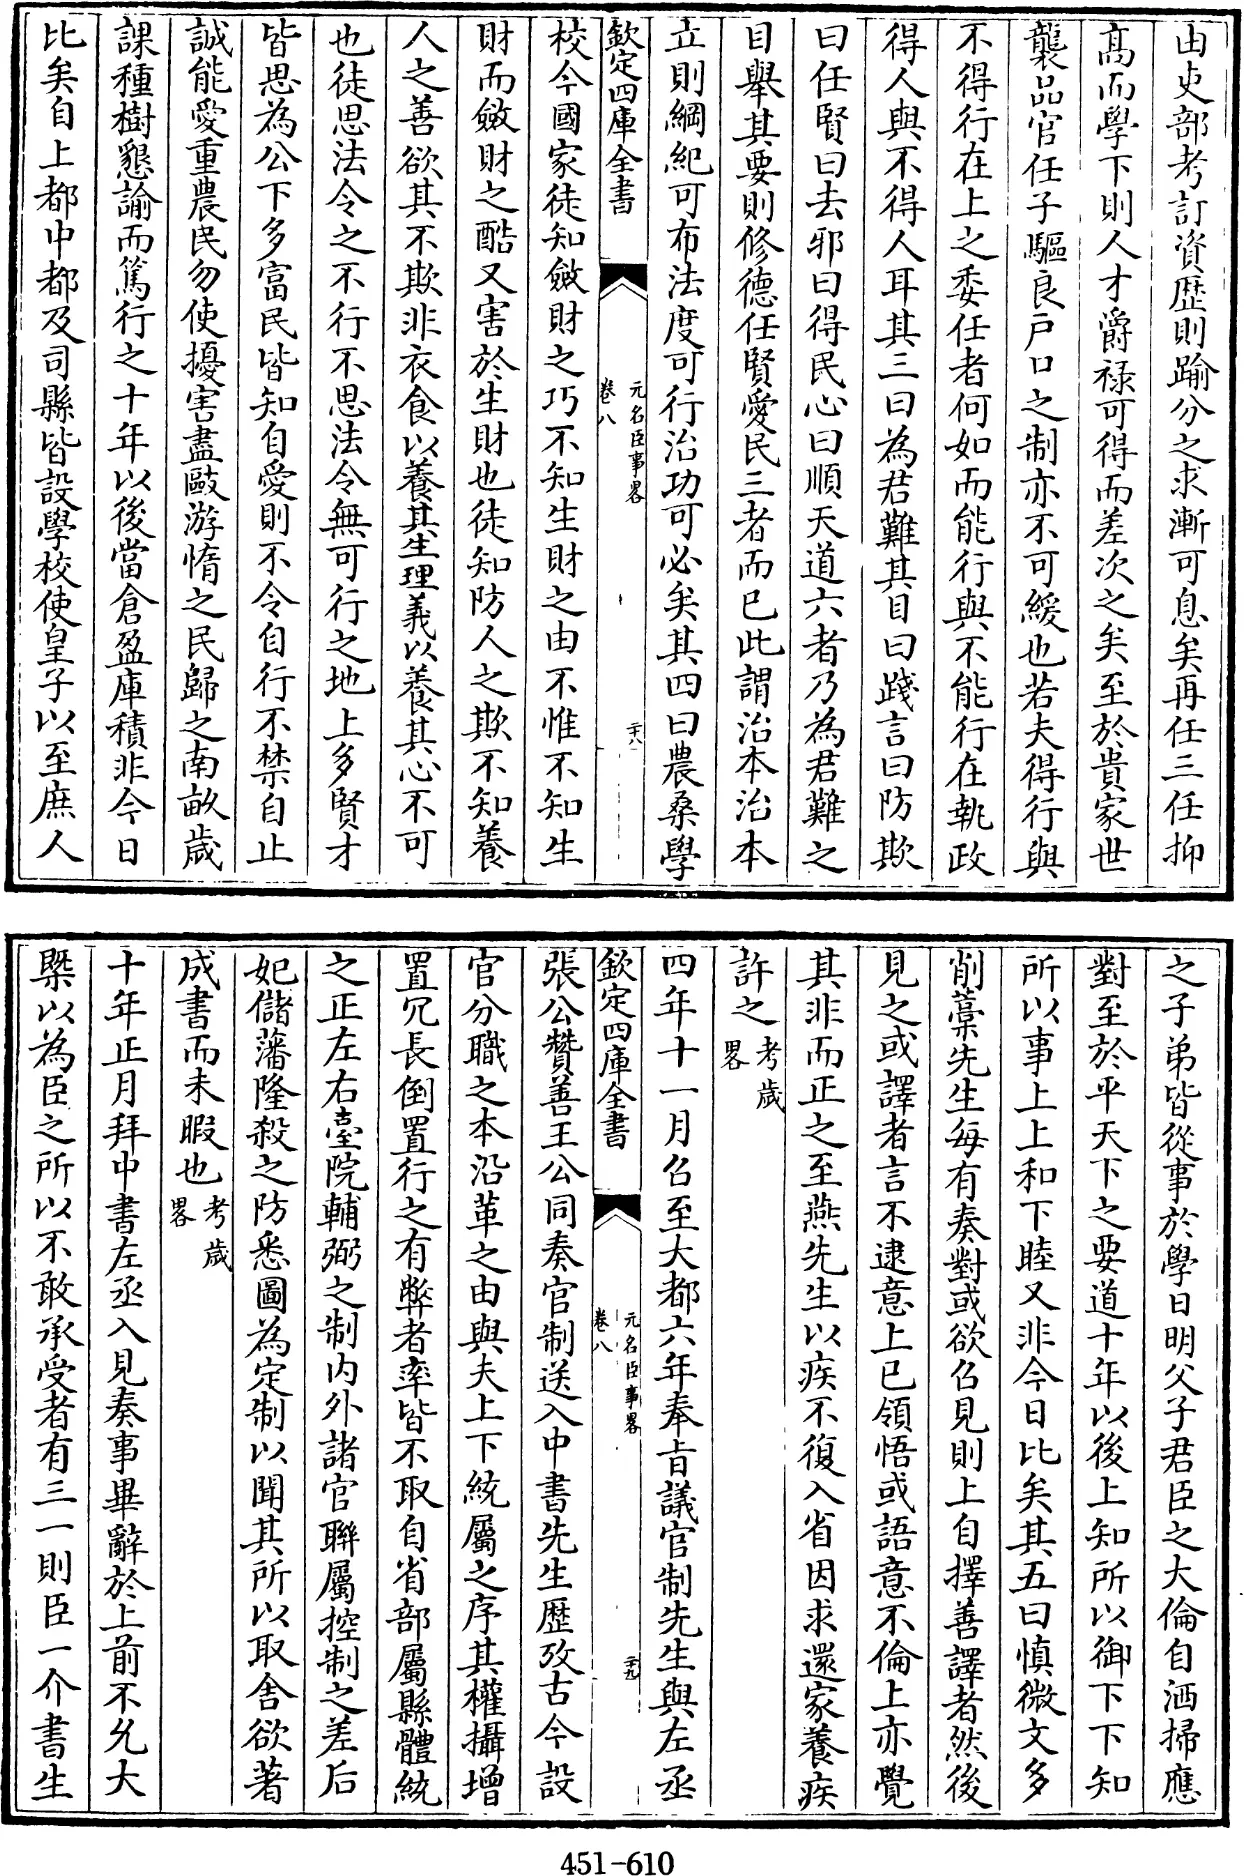 由吏部考訂資歴則踰分之求漸可息矣再任三任抑
髙而學下則人才爵禄可得而差次之矣至於貴家世
襲品官任子驅良戸口之制亦不可緩也若夫得行與
不得行在上之委任者何如而能行與不能行在執政
得人與不得人耳其三曰為君難其目曰踐言曰防欺
曰任賢曰去邪曰得民心曰順天道六者乃為君難之
目舉其要則修德任賢愛民三者而已此謂治本治本
立則綱紀可布法度可行治功可必矣其四曰農桑學
欽定四庫全書
元名臣事畧
卷八
二十八
校今國家徒知斂財之巧不知生財之由不惟不知生
財而斂財之酷又害於生財也徒知防人之欺不知養
人之善欲其不欺非衣食以養其生理義以養其心不可
也徒思法令之不行不思法令無可行之地上多賢才
皆思為公下多富民皆知自愛則不令自行不禁自止
誠能愛重農民勿使擾害盡敺游惰之民歸之南畝歳
課種樹懇諭而篤行之十年以後當倉盈庫積非今日
比矣自上都中都及司縣皆設學校使皇子以至庶人
之子弟皆從事於學日明父子君臣之大倫自洒掃應
對至於平天下之要道十年以後上知所以御下下知
所以事上上和下睦又非今日比矣其五曰慎微文多
削藁先生每有奏對或欲召見則上自擇善譯者然後
見之或譯者言不逮意上已領悟或語意不倫上亦覺
其非而正之至燕先生以疾不復入省因求還家養疾
許之考歳畧
四年十一月召至大都六年奉旨議官制先生與左丞
欽定四庫全書
元名臣事畧
卷八
二十九
張公贊善王公同奏官制送入中書先生歴攷古今設
官分職之本沿革之由與夫上下統屬之序其權攝增
置冗長倒置行之有弊者率皆不取自省部屬縣體統
之正左右臺院輔弼之制内外諸官聯屬控制之差后
妃儲藩隆殺之防悉圖為定制以聞其所以取舍欲著
成書而未暇也考歳畧
十年正月拜中書左丞入見奏事畢辭於上前不允大
槩以為臣之所以不敢承受者有三一則臣一介書生
451-610